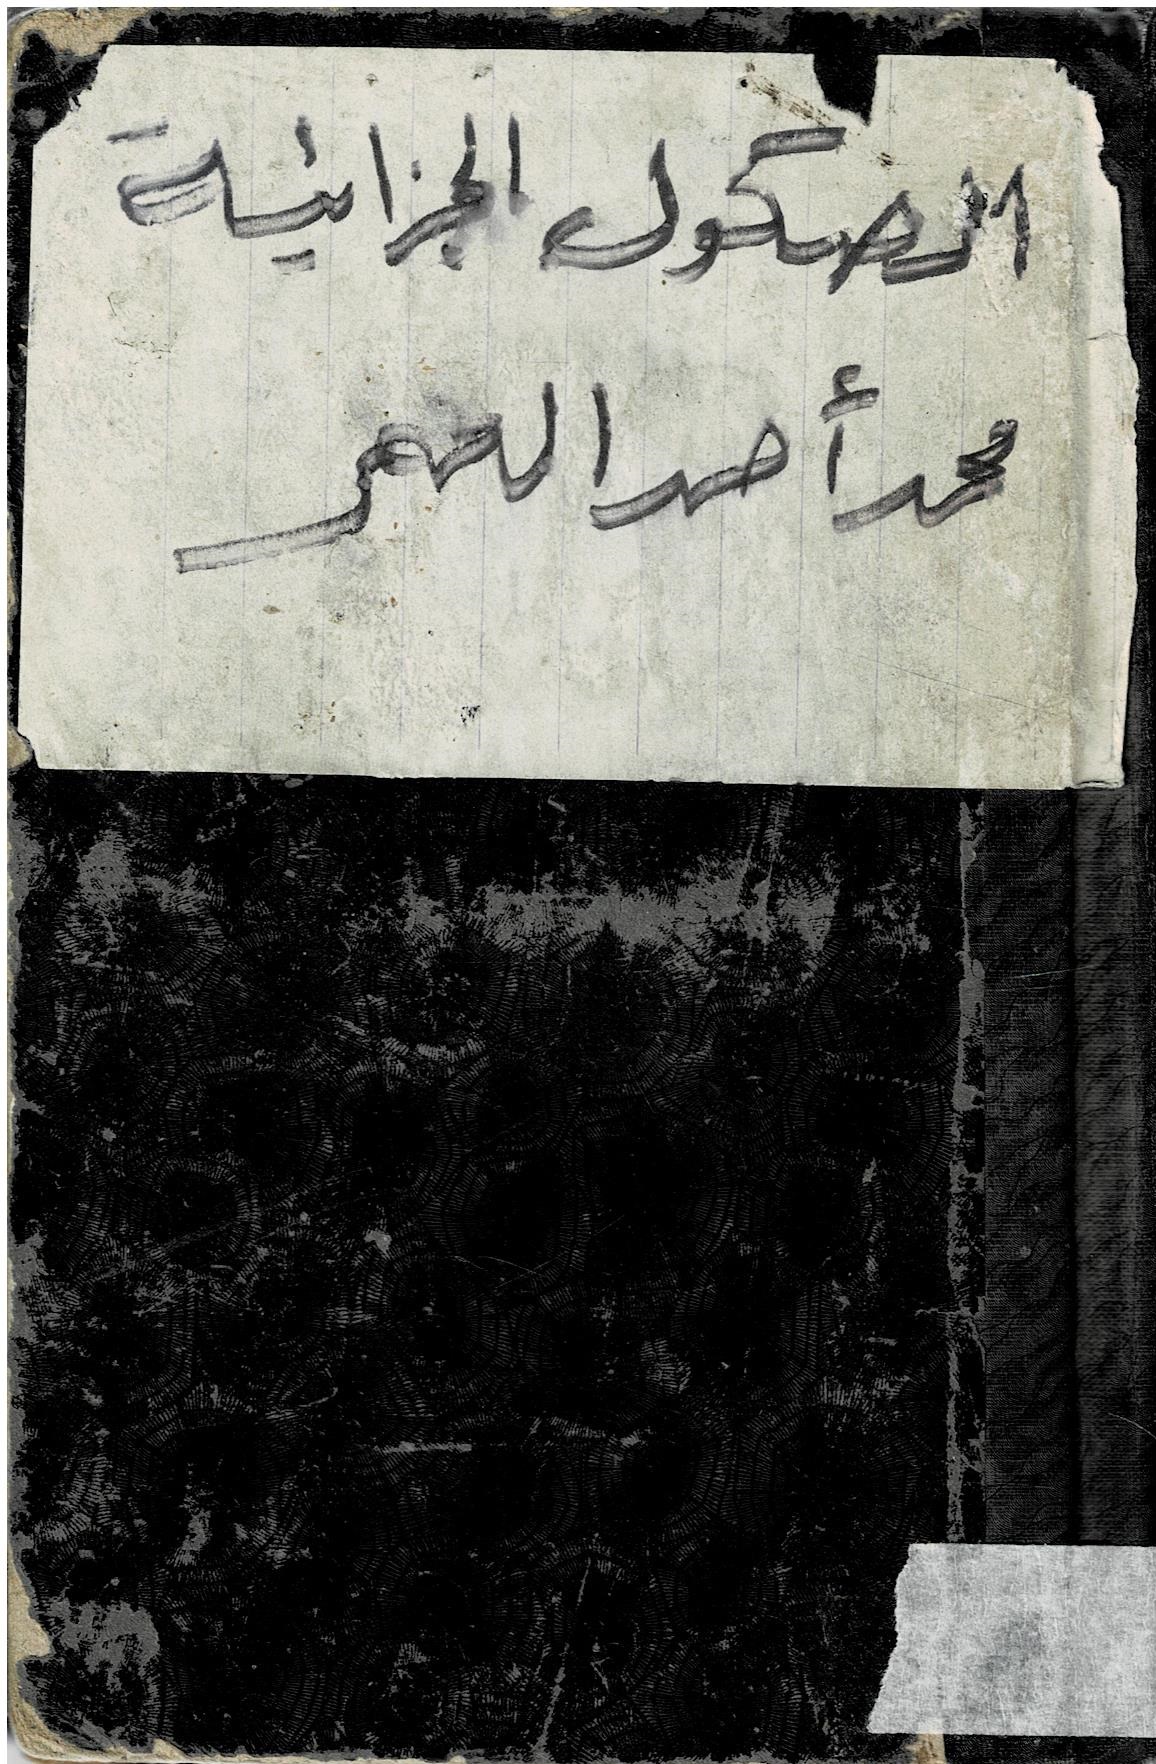 الصكوك الجزائية
محمد أحمد العمر